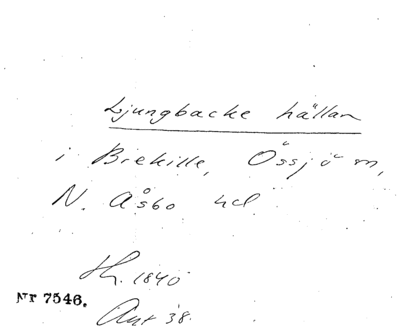 Ljungbacke hällan
i Brekille, Össjö m,
N. Åsbo hd
Th. 1840
Nr 7546.
Ant 38.